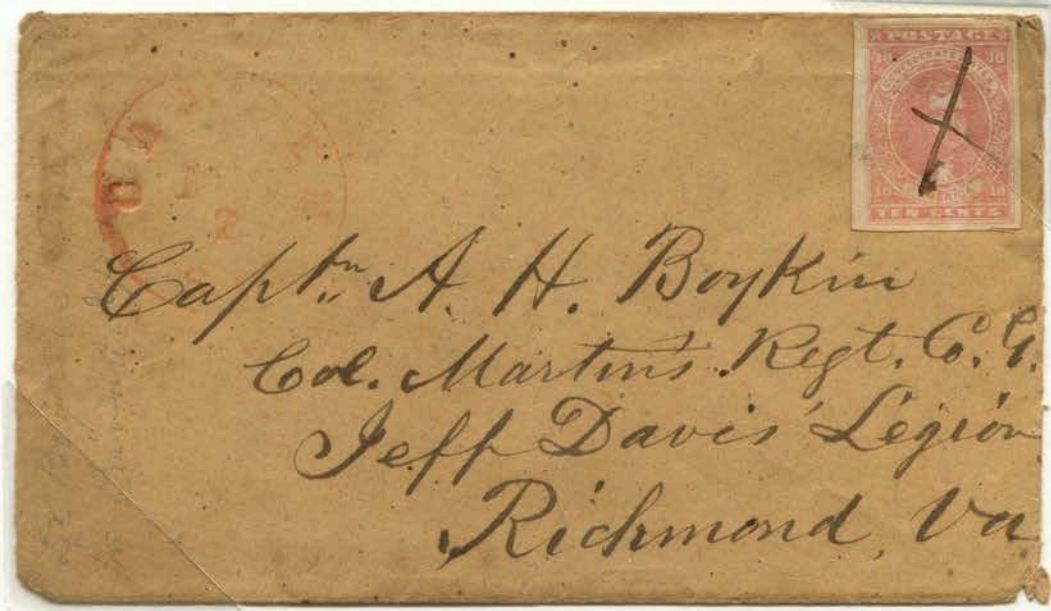 POSTAGE
10 10
CONFEDERATE STATES
10 10
TEN CENTS
Capt.n A. H. Boykin
Col. Martin's Regt. C. G.
Jeff Davis' Legion
Richmond, Va